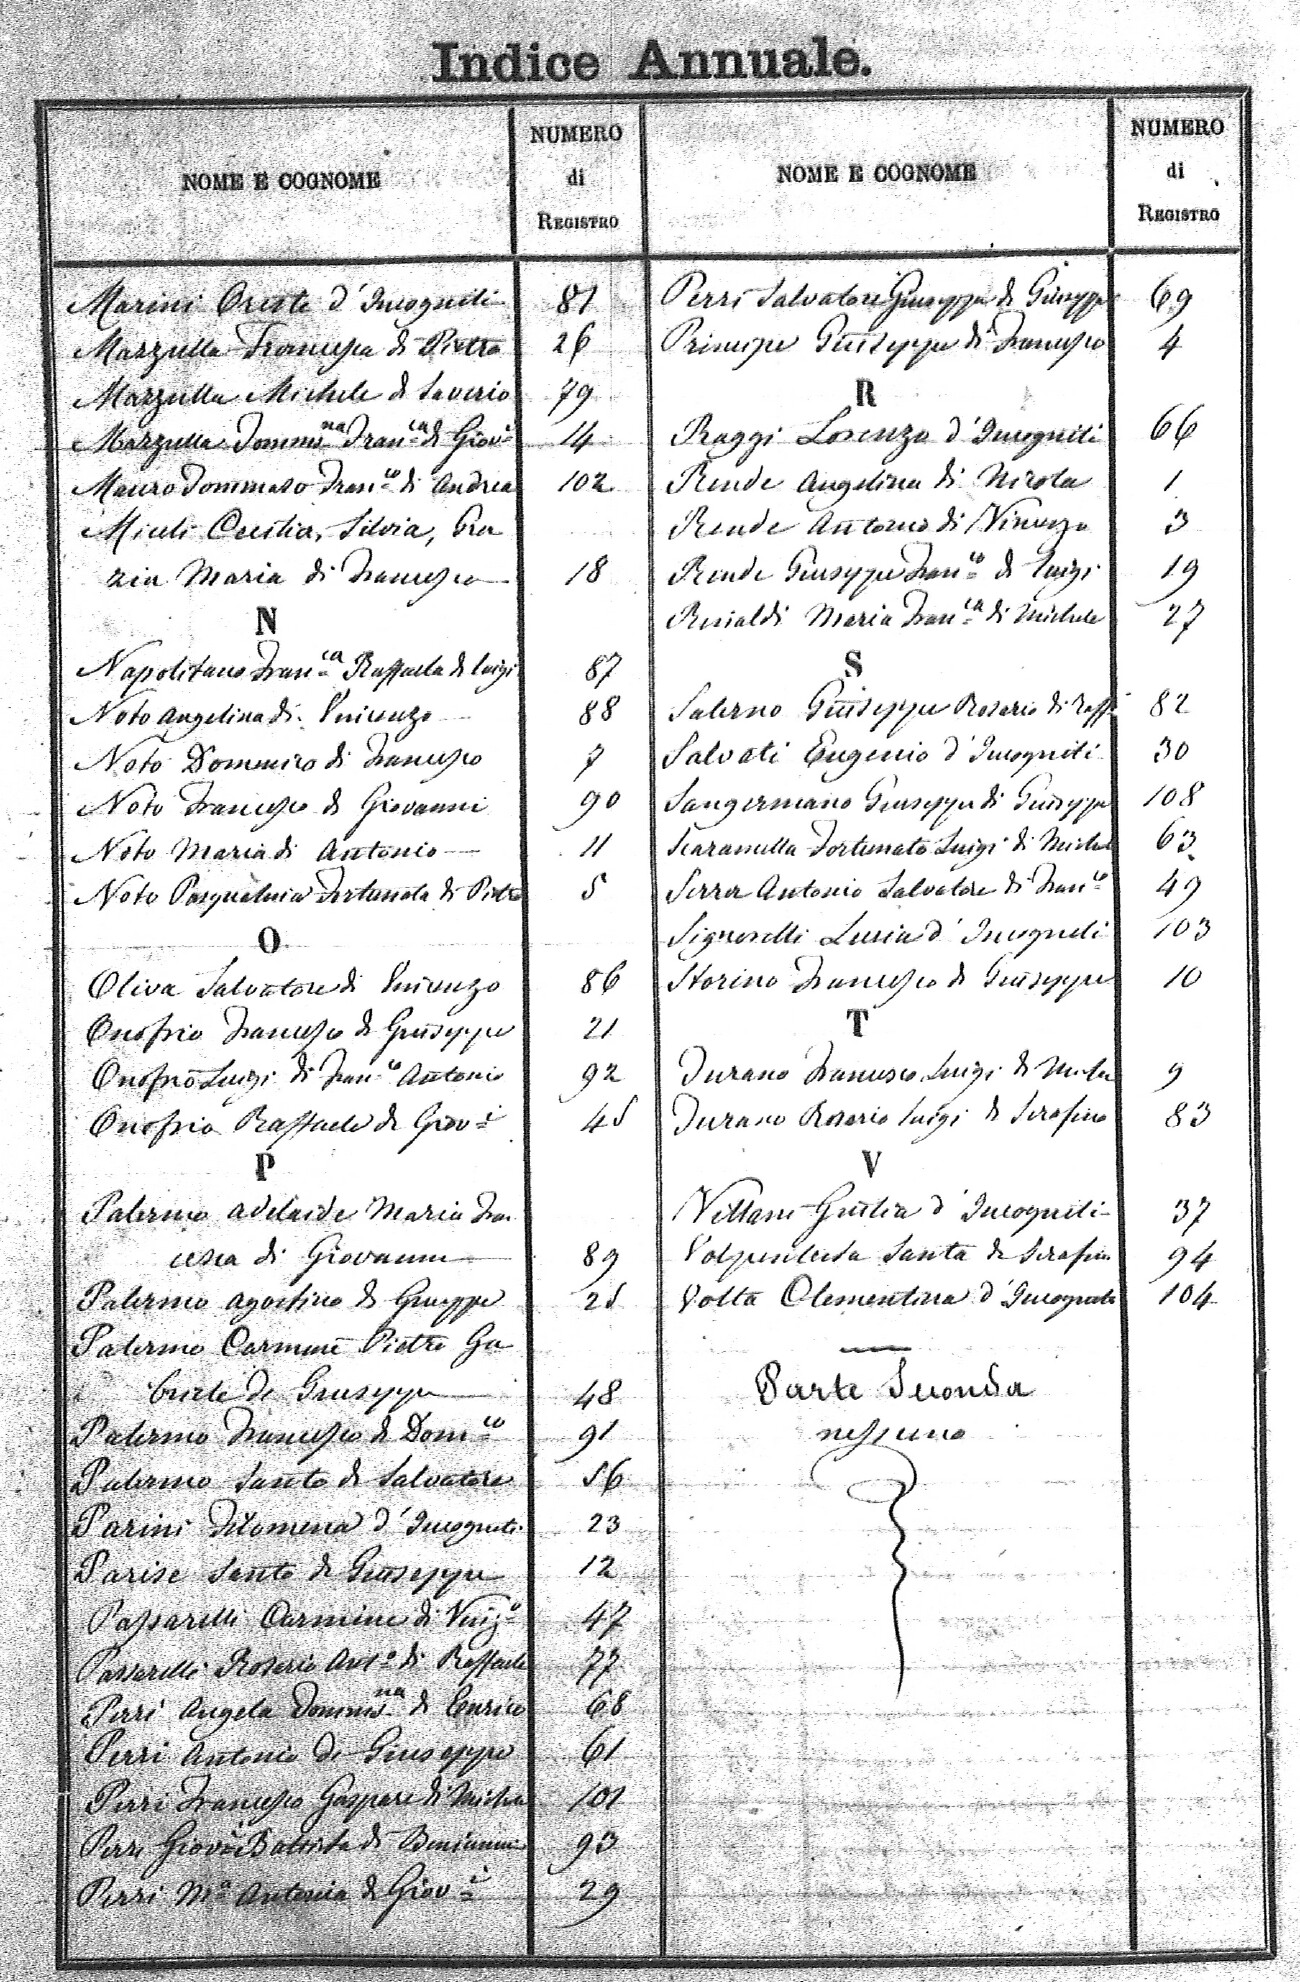 Indice Annuale.
NOME E COGNOME
NUMERO
di
REGISTRO
NOME E COGNOME
NUMERO
di
REGISTRO
Marini Oreste d'Incogniti 81
Mazzulla Francesca di Pietro 26
Mazzulla Michele di Saverio 79
Mazzulla Dommna Franca di Giovi 14
Mauro Tommaso Franco di Andrea 102
Miceli Cecilia, Silvia, Gra
zia Maria di Francesco 18
N
Napolitano Franca Raffaella di Luigi 87
Noto Angelina di Vincenzo 88
Noto Domenico di Francesco 7
Noto Francesco di Giovanni 90
Noto Maria di Antonio 11
Noto Pasqualina Fortunata di Pietro 5
O
Oliva Salvatore di Vincenzo 86
Onofrio Francesco di Giuseppe 21
Onofrio Luigi di Franco Antonio 92
Onofrio Raffaele di Giovi 45
P
Palermo Adelaide Maria Fran
cesca di Giovanni 89
Palermo Agostino di Giuseppe 25
Palermo Carmine Pietro Ga
briele di Giuseppe 48
Palermo Francesco di Domco 91
Palermo Santo di Salvatore 56
Parini Filomena d'Incogniti 23
Parise Santo di Giuseppe 12
Passarelli Carmine di Vinzo 47
Passarelli Rosario Anto di Raffaele 77
Perri Angela Dommna di Enrico 68
Perri Antonio di Giuseppe 61
Perri Francesco Gaspare di Miche 101
Perri Giovi Battista di Beniamino 93
Perri Ma Antonia di Giovi 29
Perri Salvatore Giuseppe di Giuseppe 69
Principe Giuseppe di Francesco 4
R
Raggi Lorenzo d'Incogniti 66
Rende Angelina di Nicola 1
Rende Antonio di Vincenzo 3
Rende Giuseppe Franco di Luigi 19
Rinaldi Maria Franca di Michele 27
S
Salerno Giuseppe Rosario di Raffe 82
Salvati Eugenio d'Incogniti 30
Sangermano Giuseppe di Giuseppe 108
Scaramella Fortunato Luigi di Michel 63
Serra Antonio Salvatore di Franco 49
Signorelli Lucia d'Incogniti 103
Storino Francesco di Giuseppe 10
T
Turano Francesco Luigi di 9
Turano Rosario Luigi di Serafino 83
V
Vittani Giulia d'Incogniti 37
Volpentesta Santa di Serafino 94
Volta Clementina d'Incogniti 104
Parte Seconda
nessuno